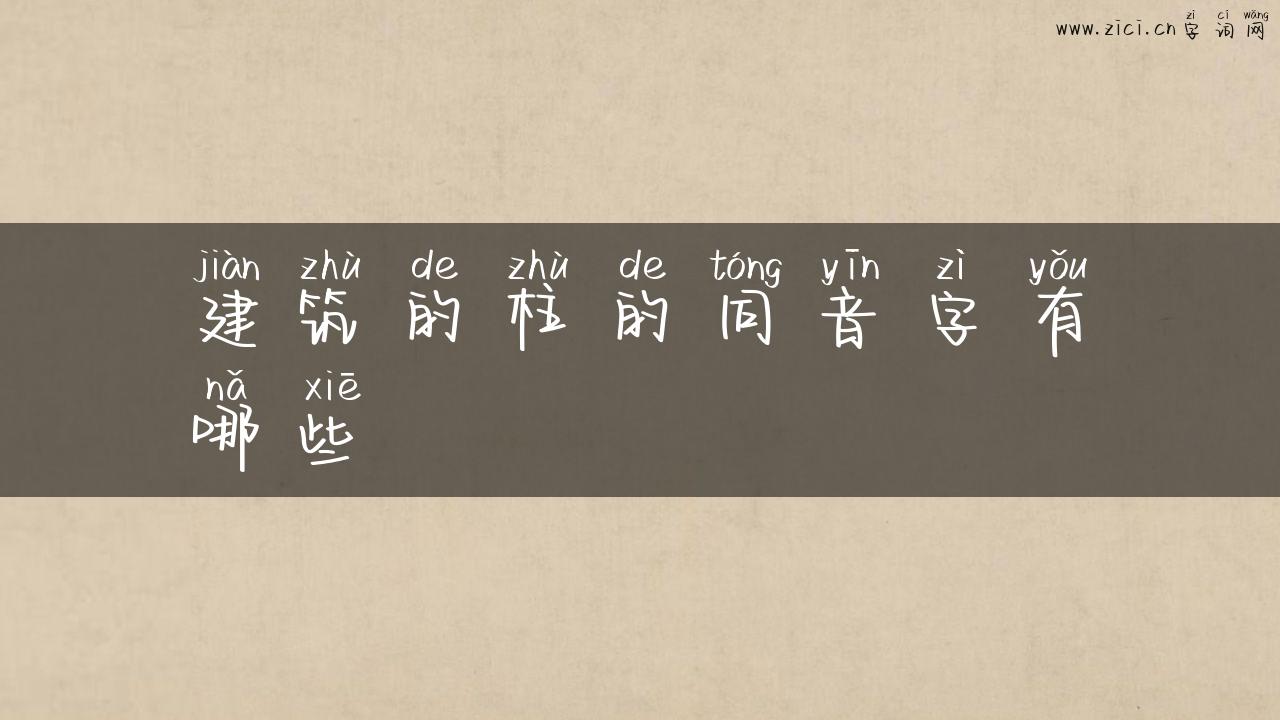 zì cí wǎng
www.zici.cn 字词网
jiàn zhù de zhù de tóng yīn zì yǒu
建筑的柱的同音字有
nǎ xiē
哪些